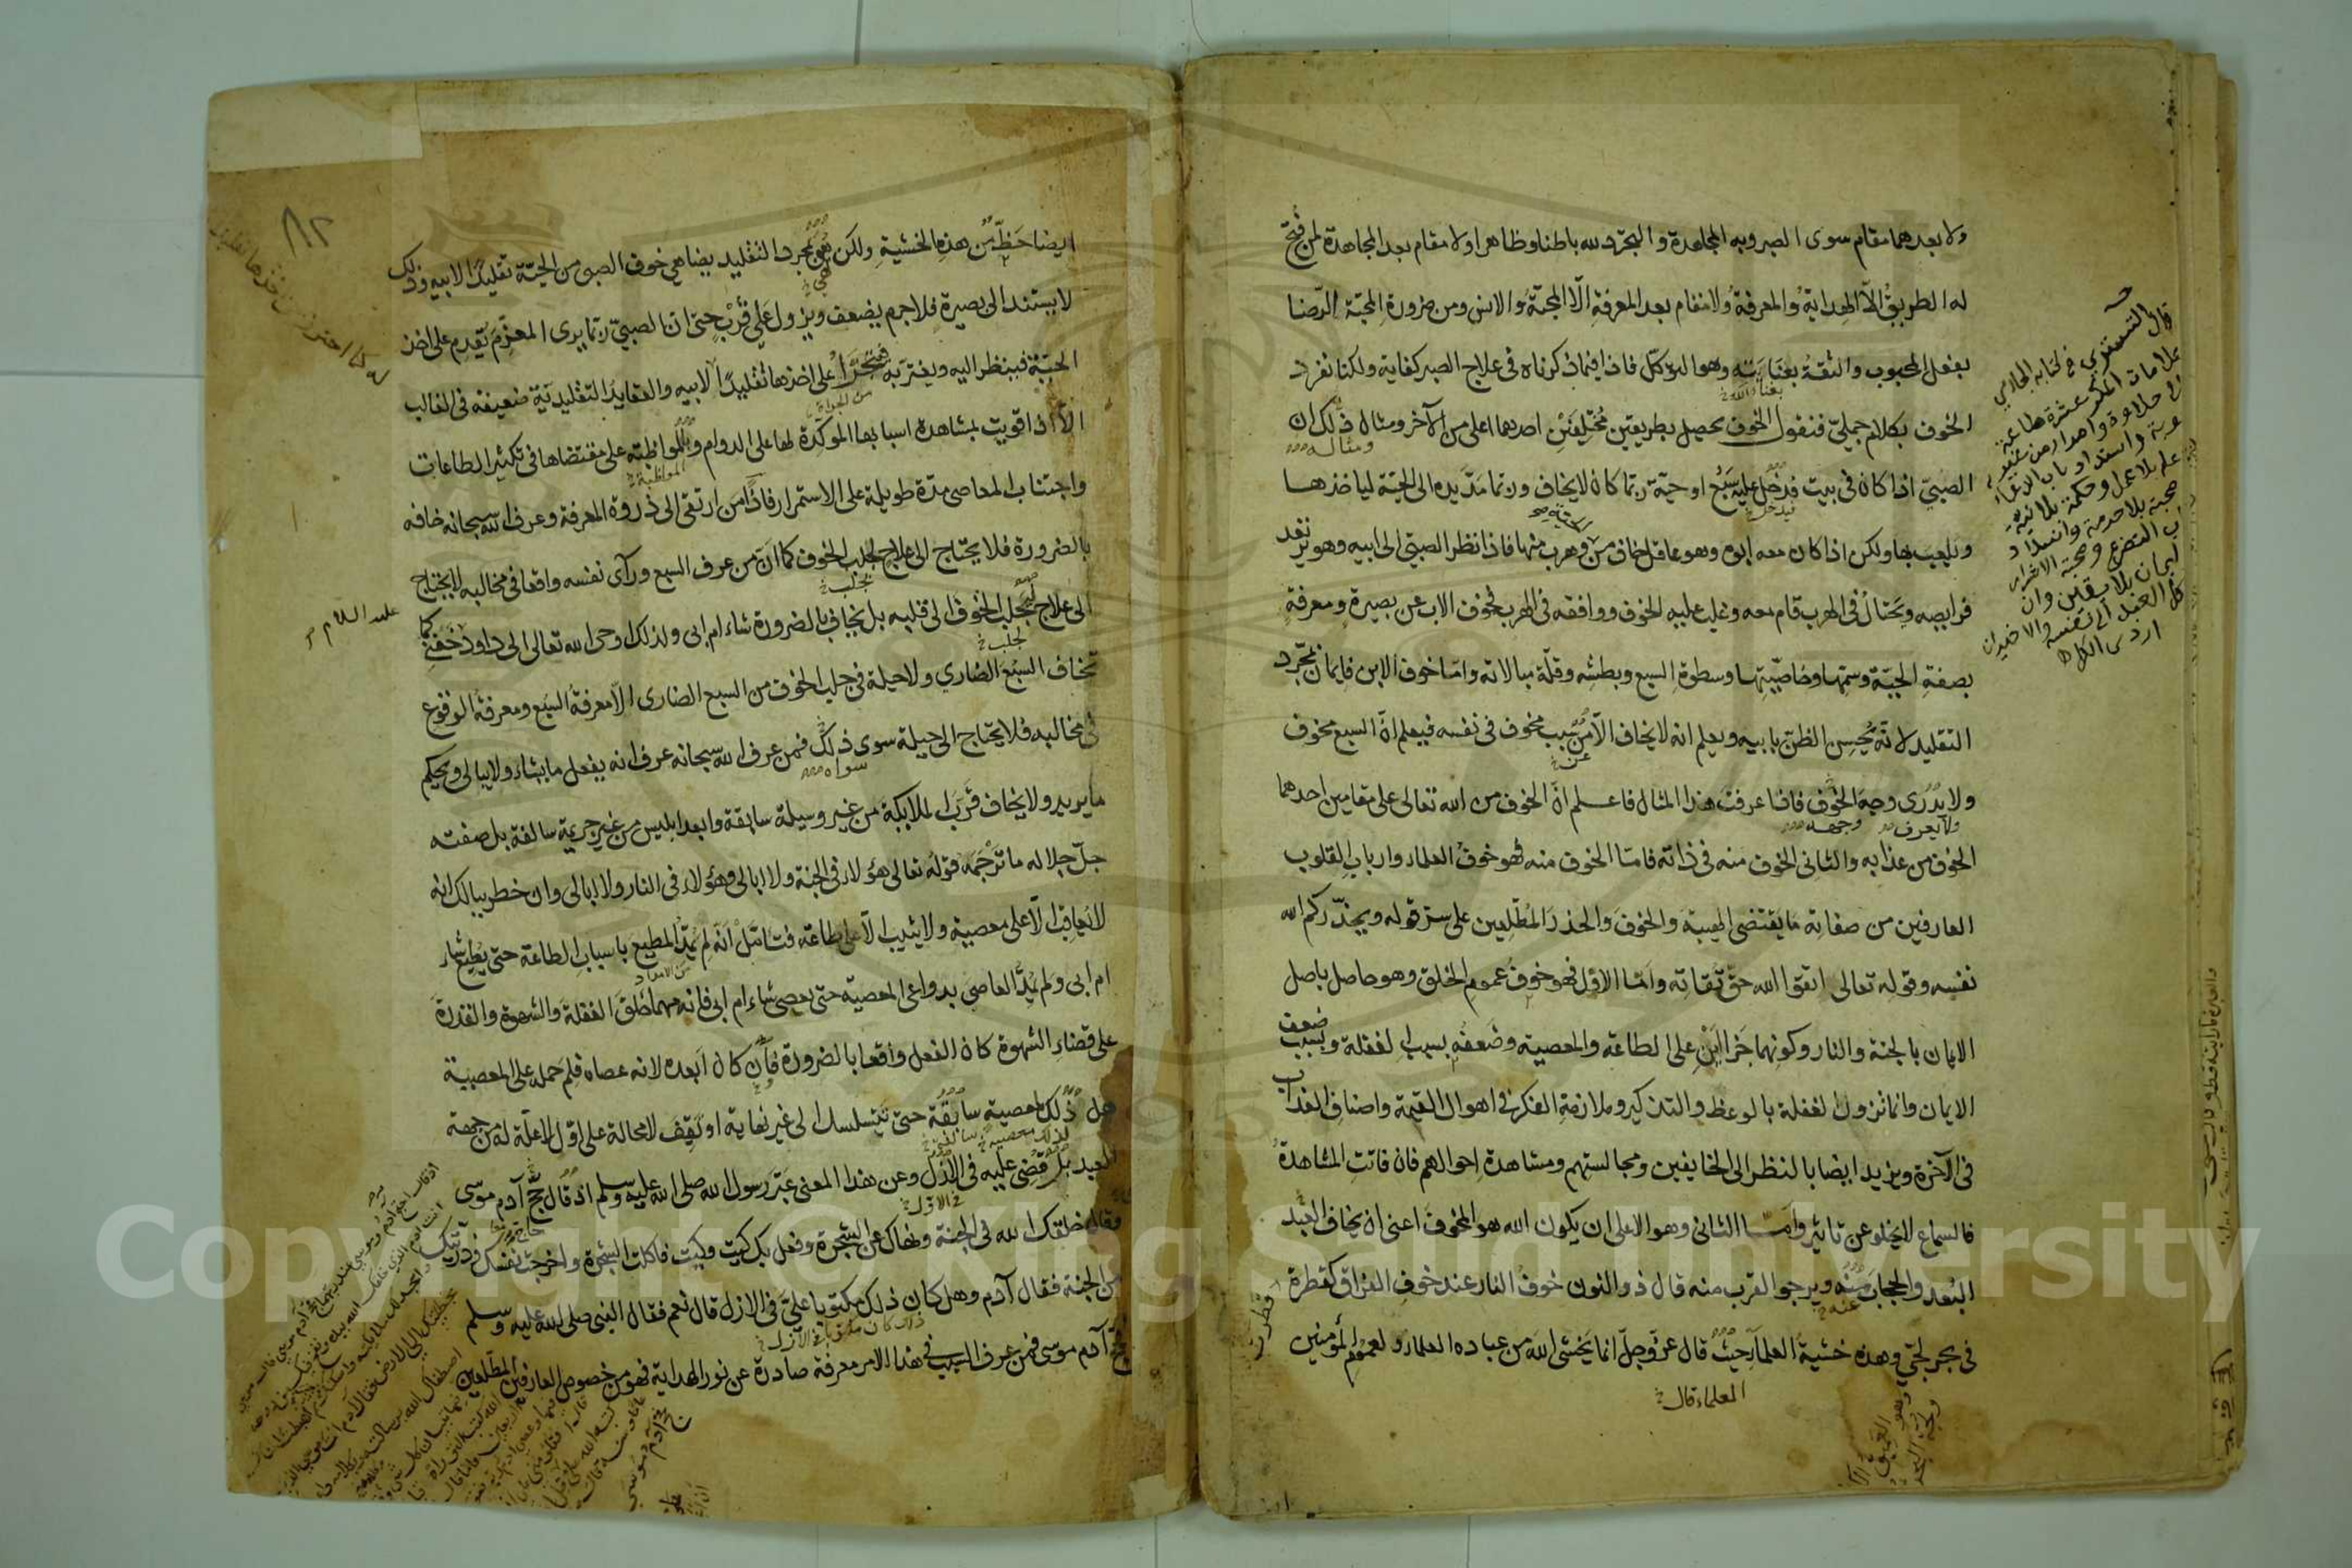 ولا بعدهما مقام سوى الصبر وبه المجاهدة والتجرد لله باطنا وظاهرا ولا مقام بعد المجاهدة لمن فُتح
له الطريقُ الّا الهدايةُ والمعرفةُ ولا مقام بعد المعرفةِ الّا المحبّةُ والانس ومن ضرورةِ المحبّة الرّضا
بفعل المحبوب والثقةُ بعنايته وهو التوكّل فاذا فيما ذكرناه فى علاج الصبر كفاية ولكنا نفرد
بعناية الله
الخوف بكلام جمليّ فنقول الخوف يحصل بطريقين مُختلِفَيْنِ احدهما اعلى من الآخر ومثال ذلك ان
ومثاله
الصبيّ اذا كان فى بيت فدخل عليه سَبُع او حيّة ربّما كان لا يخاف وربّما مَدَّ يده الى الحيّة لياخذها
فيدخل
ويلعب بها ولكن اذا كان معه ابوه وهو عاقل خاف منها وهرب منها فاذا نظر الصبيّ الى ابيه وهو ترتعد
فرايصه ويَحتالُ فى الهرب قام معه وغلب عليه الخوف ووافقه فى الهرب فخوف الاب عن بصيرة ومعرفةٍ
بصفةِ الحيّة وسمّها وخاصّيّتِها وسطوةِ السبع وبطشِه وقلّة مبالاته وامّا خوف الابن فايمان بمجرّد
التقليد لانّه يُحسِن الظنّ بابيه ويعلم انه لا يخاف الّا من سبب مخوف فى نفسه فيعلم انّ السبع مخوف
عن
ولا يدرى وجهَ الخوف فاذا عرفتَ هذا المثال فاعلم انّ الخوف من الله تعالى على مقامين احدهما
ولا يعرف وجهه
الخوف من عذابه والثانى الخوف منه فى ذاته فامّا الخوف منه فهو خوفُ العلماء وارباب القلوب
العارفين من صفاته ما يَقتضى الهيبةَ والخوفَ والحذرَ المُطّلِعين على سرّ قوله ويحذّركم الله
نفسه وقوله تعالى اتقوا الله حقّ تُقاته وامّا الاوّل فهو خوفُ عمومِ الخلق وهو حاصل باصل
الايمان بالجنة والنار وكونهما جَزاءَيْنِ على الطاعة والمعصية وضَعفُه بسبب الغفلة وبسبب ضعف
الايمان وانما تزول الغفلة بالوعظ والتذكير وملازمةِ الفكر فى اهوال القيمة واصنافِ العذاب
فى الآخرة ويزيد ايضا بالنظر الى الخايفين ومجالستِهم ومشاهدة احوالهم فان فاتتِ المشاهدةُ
فالسماع لا يخلو عن تاثير وامّا الثانى وهو الاعلى ان يكون الله هو المخوفَ اعنى ان يخاف العبد
البُعد والحجاب منه ويرجو القرب منه قال ذو النون خوفُ النار عند خوفِ الفراق كقطرة
عنه
فى بحر لجّيّ وهذه خشيةُ العلماء حيث قال عزّ وجلّ انما يَخشى اللهَ من عباده العلماءُ ولعموم المؤمنين
العلماء قال
قال التسترى فى كتابه
٨٢
ايضا حَظّ من هذه الخشيةِ ولكن هو بمجرد التقليد يضاهي خوف الصبى من الحيّة تقليدًا لابيه وذلك
لا يستند الى بصيرة فلاجرم يضعف ويزول على قُرْبٍ حتى انّ الصبيّ ربّما يرى المعزِّمَ يُقدِم على اخذ
الحيّة فينظر اليه ويغترّ به فيتجرّأ على اخذها تقليدًا لابيه والعقايد التقليديّة ضعيفة فى الغالب
من الجرأة
الّا اذا قويت بمشاهدة اسبابها المؤكّدة لها على الدوام وبالمواظبة على مقتضاها فى تكثير الطاعات
المواظبة
واجتناب المعاصى مدّة طويلة على الاستمرار فاذًا من ارتقى الى ذروة المعرفة وعرف الله سبحانه خافه
بالضرورة فلا يحتاج الى علاج لجلب الخوف كما انّ من عرف السبع ورآى نفسه واقعا فى مخالبه لا يحتاج
الى علاج لجلب الخوف الى قلبه بل يخاف بالضرورة شاء ام ابى ولذلك اوحى الله تعالى الى داود خفنى كما
عليه السلام
تخاف السبُع الضاري ولا حيلة فى جلب الخوف من السبع الضارى الّا معرفة السبع ومعرفة الوقوع
فى مخالبه فلا يحتاج الى حيلة سوى ذلك فمن عرف الله سبحانه عرف انه يفعل ما يشاء ولا يبالى ويحكم
سواه
ما يريد ولا يخاف قَرَّب الملايكة من غير وسيلة سابقة وابعد ابليس من غير جريمة سالفة بل صفته
جلّ جلاله ما تَرْجَمَه قولُه تعالى هؤلاء فى الجنة ولا ابالى وهؤلاء فى النار ولا ابالى وان خطر ببالك انه
لا يُعاقِب الّا على معصية ولا يثيب الّا على طاعة فتامّل انّه لم يُمِدَّ المطيعَ باسباب الطاعة حتى يُطيع شاء
من الامداد
ام ابى ولم يُمِدَّ العاصي بدواعى المعصية حتى يعصى شاء ام ابى فانه مهما خلق الغفلةَ والشهوة والقدرةَ
على قضاءِ الشهوة كان الفعل واقعا بالضرورة فان كان ابعده لانه عصاه فلِمَ حمله على المعصية
هل ذلك لمعصيةٍ سابقة حتى يتسلسل الى غير نهاية او يَقِف لا محالة على اوّلٍ لا علّة له من جهة
العبد بل قُضِى عليه فى الازل وعن هذا المعنى عَبّر رسول الله صلى الله عليه وسلم اذ قال حَجَّ آدم موسى
فى الاول
وقال خلقك الله فى الجنة ونهاك عن الشجرة وفعل بك كيت وكيت فاكلت الشجرة واخرجت نفسك وذريتك
من الجنة فقال آدم وهل كان ذلك مكتوبا عليَّ فى الازل قال نعم فقال النبى صلى الله عليه وسلم
فحجّ آدم موسى فمن عرف السبب فى هذا الامر معرفة صادرة عن نور الهداية فهو من خصوص العارفين المطّلعين
Copyright © King Saud University